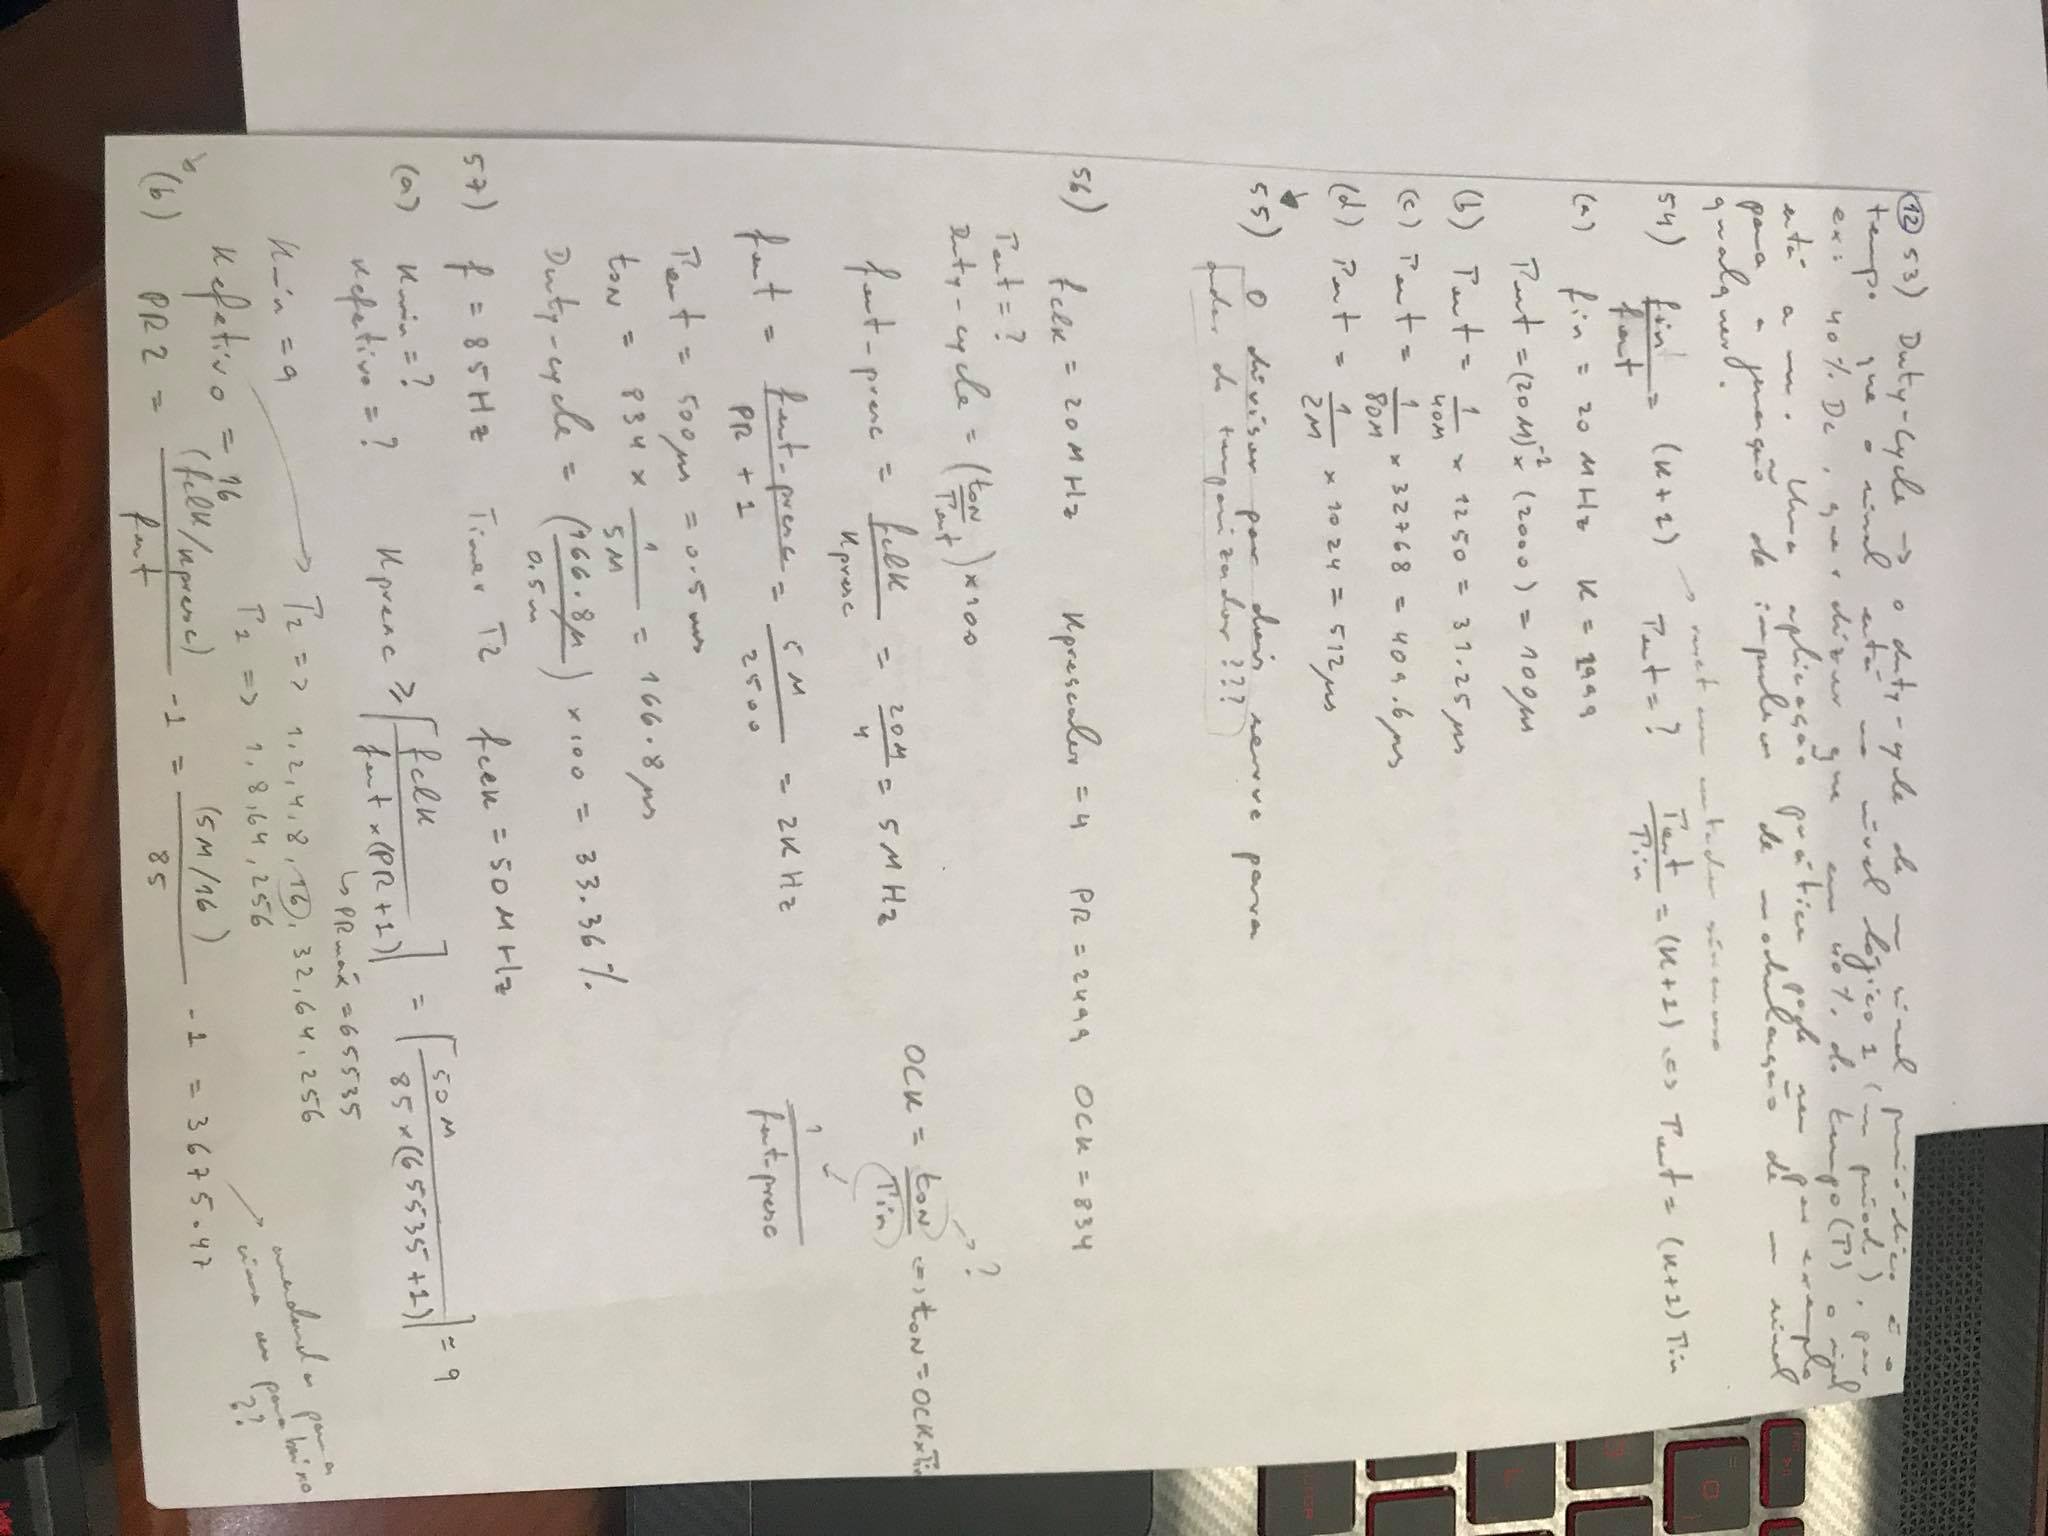 12 53) Duty-Cycle → o duty-cycle de um sinal periódico é o
tempo que o sinal está no nível lógico 1 (um período), por
ex: 40% Dc, quer dizer que em 40% do tempo (T) o sinal
está a um. Uma aplicação prática pode ser por exemplo
para a geração de impulsos de modulação de um sinal
qualquer.
→ reset contador síncrono
54) fin/fout = (K+1) Tout = ? Tout/Tin = (K+1) <=> Tout = (K+1) Tin
(a) fin = 20 MHz K = 1999
Tout = (20M)^-1 × (2000) = 100 µs
(b) Tout = 1/40M × 1250 = 31.25 µs
(c) Tout = 1/80M × 32768 = 409.6 µs
(d) Tout = 1/2M × 1024 = 512 µs
55) O divisor por dois serve para
do temporizador ???
56) fclk = 20 MHz Kprescaler = 4 PR = 2499 OCK = 834
Tout = ?
Duty-cycle = (tON/Tout) × 100
OCK = tON/Tin <=> tON = OCK × Tin
?
fout-presc = fclk/Kpresc = 20M/4 = 5 MHz
1/fout-presc
fout = fout-presc/PR + 1 = 5M/2500 = 2K Hz
Tout = 500 µs = 0.5 ms
tON = 834 × 1/5M = 166.8 µs
Duty-cycle = (166.8µ/0.5m) × 100 = 33.36 %
57) f = 85 Hz Timer T2 fclk = 50 MHz
(a) Kmin = ?
Kefetivo = ?
Kpresc ≥ ⌈fclk/fout × (PR+1)⌉ = ⌈50M/85 × (65535+1)⌉ = 9
↳ PRmáx = 65535
Kmin = 9
T2 => 1, 2, 4, 8, 16, 32, 64, 256
T1 => 1, 8, 64, 256
Kefetivo = 16
(b) PR2 = (fclk/Kpresc)/fout - 1 = (5M/16)/85 - 1 = 3675.47
→ arredondar para
cima ou para baixo
??